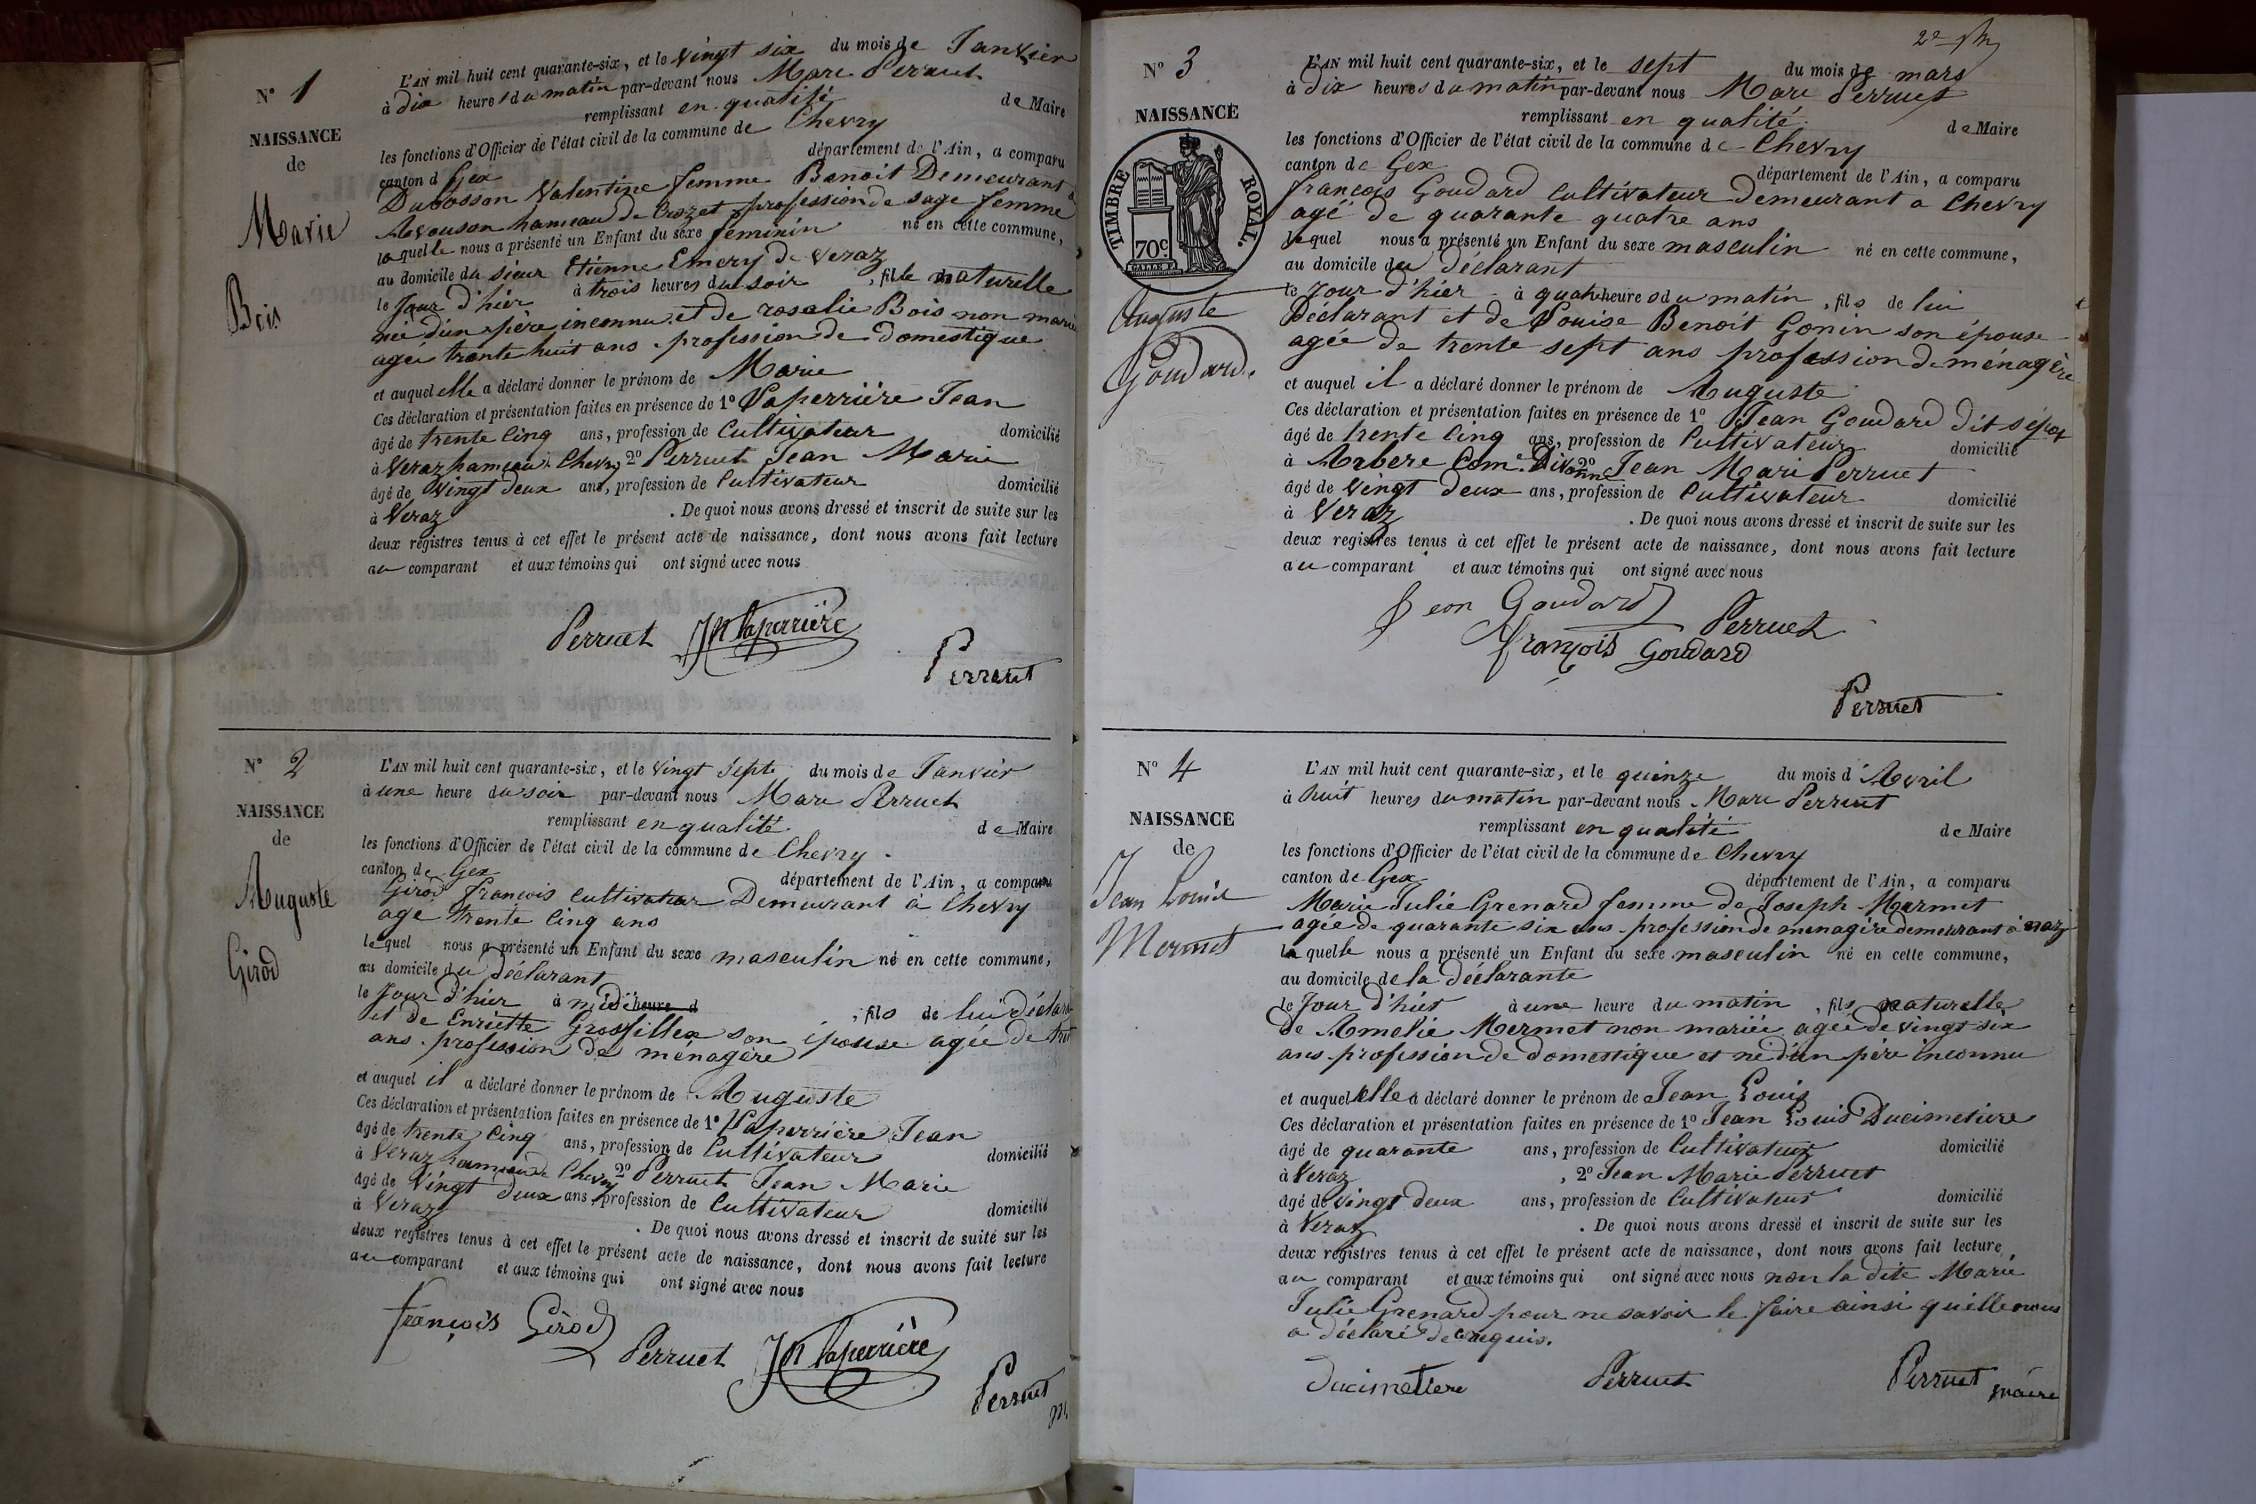 N° 1
NAISSANCE
de
Marie
Bois
L'AN mil huit cent quarante-six, et le vingt six du mois de Janvier
à dix heures du matin par-devant nous Marc Perruet
remplissant en qualité de Maire
les fonctions d'Officier de l'état civil de la commune de Chevry
canton d Gex département de l'Ain, a comparu
Dubosson Valentine femme Benoit Demeurant à
Avouson hameau de Crozet profession de sage femme
laquelle nous a présenté un Enfant du sexe feminin né en cette commune,
au domicile du sieur Etienne Emery de Veraz
le Jour d'hier à trois heures du soir, fille naturelle
née d'un père inconnu et de rosalie Bois non mariée
agée trente huit ans profession de Domestique
et auquel elle a déclaré donner le prénom de Marie
Ces déclaration et présentation faites en présence de 1° Laperrière Jean
âgé de trente Cinq ans, profession de Cultivateur domicilié
à Veraz hameau Chevry 2° Perruet Jean Marie
âgé de Vingt deux ans, profession de Cultivateur domicilié
à Veraz . De quoi nous avons dressé et inscrit de suite sur les
deux registres tenus à cet effet le présent acte de naissance, dont nous avons fait lecture
au comparant et aux témoins qui ont signé avec nous
Perruet Jn Laperrière
Perruet
N° 2
NAISSANCE
de
Auguste
Girod
L'AN mil huit cent quarante-six, et le vingt Sept du mois de Janvier
à une heure du soir par-devant nous Marc Perruet
remplissant en qualité de Maire
les fonctions d'Officier de l'état civil de la commune de Chevry.
canton de Gex département de l'Ain, a comparu
Girod François Cultivateur Demeurant à Chevry
age trente Cinq ans
lequel nous a présenté un Enfant du sexe masculin né en cette commune,
au domicile du Déclarant
le Jour d'hier à midi heure d , fils de lui Déclarant
et de Enriette Grosfillex son épouse agée de
ans profession de ménagère
et auquel il a déclaré donner le prénom de Auguste
Ces déclaration et présentation faites en présence de 1° Laperrière Jean
âgé de trente Cinq ans, profession de Cultivateur domicilié
à Veraz hameau de Chevry 2° Perruet Jean Marie
âgé de Vingt deux ans, profession de Cultivateur domicilié
à Veraz . De quoi nous avons dressé et inscrit de suite sur les
deux registres tenus à cet effet le présent acte de naissance, dont nous avons fait lecture
au comparant et aux témoins qui ont signé avec nous
François Girod
Perruet Jn Laperrière
Perruet
m.
2e
N° 3
NAISSANCE
TIMBRE ROYAL.
70c.
Auguste
Goudard.
L'AN mil huit cent quarante-six, et le sept du mois de mars
à dix heures du matin par-devant nous Marc Perruet
remplissant en qualité de Maire
les fonctions d'Officier de l'état civil de la commune de Chevry
canton de Gex département de l'Ain, a comparu
François Goudard Cultivateur Demeurant a Chevry
agé de quarante quatre ans
lequel nous a présenté un Enfant du sexe masculin né en cette commune,
au domicile du Déclarant
le Jour d'hier à quatre heures du matin, fils de lui
Déclarant et de Louise Benoit Gonin son épouse
agée de trente sept ans profession de ménagère
et auquel il a déclaré donner le prénom de Auguste
Ces déclaration et présentation faites en présence de 1° Jean Goudard Dit
âgé de trente Cinq ans, profession de Cultivateur domicilié
à Arbere Come Divonne 2° Jean Marie Perruet
âgé de Vingt deux ans, profession de Cultivateur domicilié
à Veraz . De quoi nous avons dressé et inscrit de suite sur les
deux registres tenus à cet effet le présent acte de naissance, dont nous avons fait lecture
au comparant et aux témoins qui ont signé avec nous
Jean Goudard Perruet
François Goudard
Perruet
N° 4
NAISSANCE
de
Jean Louis
Mermet
L'AN mil huit cent quarante-six, et le quinze du mois d'Avril
à huit heures du matin par-devant nous Marc Perruet
remplissant en qualité de Maire
les fonctions d'Officier de l'état civil de la commune de Chevry
canton de Gex département de l'Ain, a comparu
Marie Julie Grenard femme de Joseph Mermet
agée de quarante six ans profession de menagère demeurant à
laquelle nous a présenté un Enfant du sexe masculin né en cette commune,
au domicile de la Déclarante
le Jour d'hier à une heure du matin, fils naturelle
de Amelie Mermet non mariée agée de vingt six
ans profession de Domestique et né d'un père inconnu
et auquel elle a déclaré donner le prénom de Jean Louis
Ces déclaration et présentation faites en présence de 1° Jean Louis Ducimetiere
âgé de quarante ans, profession de Cultivateur domicilié
à Veraz , 2° Jean Marie Perruet
âgé de Vingt deux ans, profession de Cultivateur domicilié
à Veraz . De quoi nous avons dressé et inscrit de suite sur les
deux registres tenus à cet effet le présent acte de naissance, dont nous avons fait lecture
au comparant et aux témoins qui ont signé avec nous non la dite Marie
Julie Grenard pour ne savoir le faire ainsi qu'elle nous
a déclaré de ce requis.
Ducimetiere Perruet Perruet maire